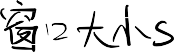 窗口大小s